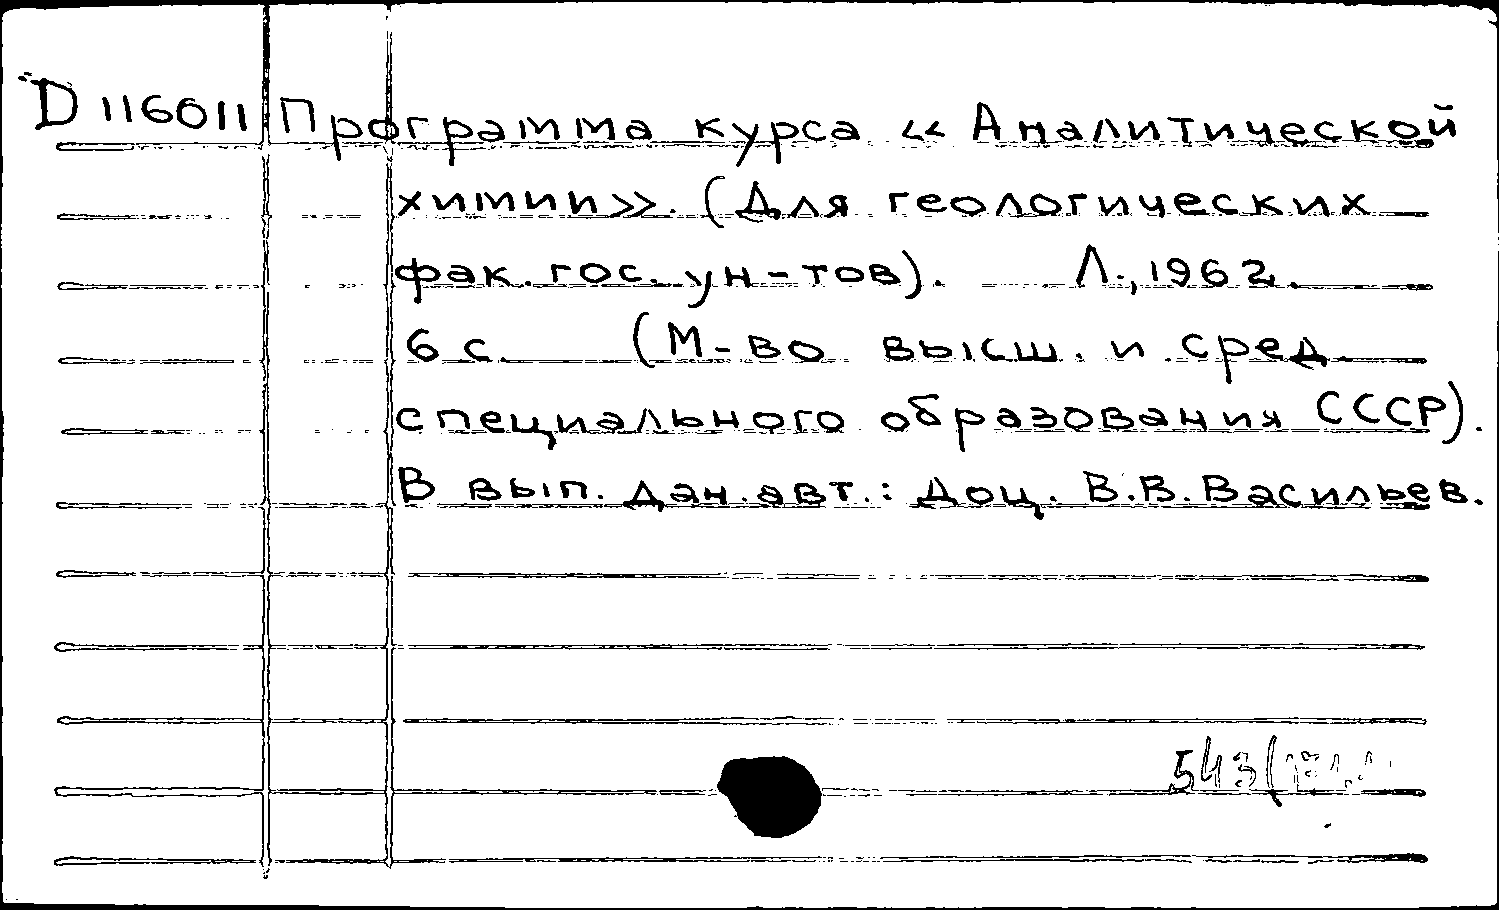 D 116011 Программа курса «Аналитической
химии». (Для геологических
фак. гос. ун-тов). Л., 1962.
6 с. (М-во высш. и сред.
специального образования СССР).
В вып. дан. авт.: Доц. В.В. Васильев.
543(